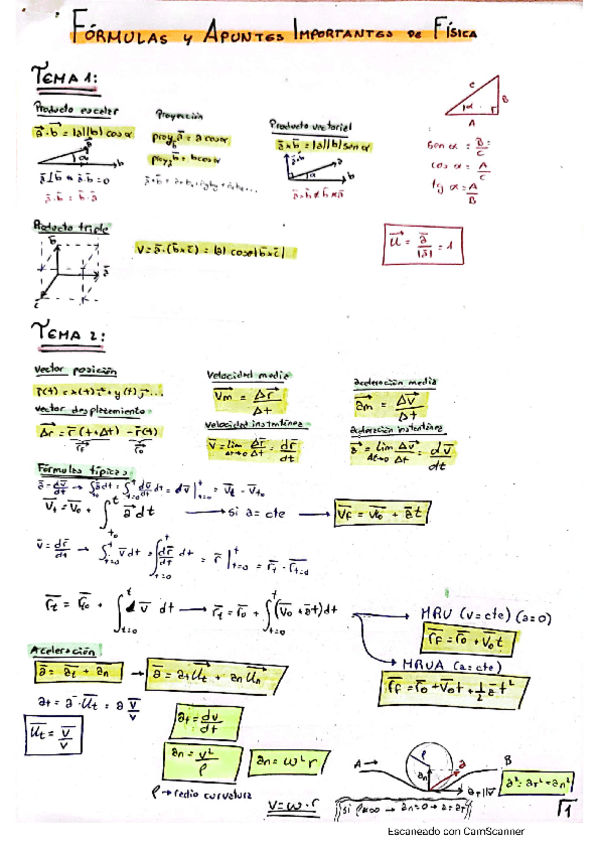 FÓRMULAS Y APUNTES IMPORTANTES DE FÍSICA
TEMA 1:
Producto escalar
a⃗·b⃗ = |a||b| cos α
a⃗⊥b⃗ ⇒ a⃗·b⃗ = 0
a⃗·b⃗ = b⃗·a⃗
Proyección
proy_b a⃗ = a cos α
proy_a b⃗ = b cos α
Producto vectorial
a⃗×b⃗ = |a||b| sen α
C
B
A
α
sen α = B/C
cos α = A/C
tg α = A/B
Producto triple
V = a⃗·(b⃗×c⃗) = |a| cos θ |b×c|
u⃗ = a⃗/|a⃗| = 1
TEMA 2:
Vector posición
r⃗(t) = x(t)i⃗ + y(t)j⃗...
vector desplazamiento
Δr⃗ = r⃗(t+Δt) - r⃗(t)
Velocidad media
v⃗m = Δr⃗/Δt
velocidad instantánea
v⃗ = lim Δt→0 Δr⃗/Δt = dr⃗/dt
aceleración media
a⃗m = Δv⃗/Δt
aceleración instantánea
a⃗ = lim Δt→0 Δv⃗/Δt = dv⃗/dt
Fórmulas típicas:
v⃗t = v⃗0 + ∫ a⃗ dt → si a = cte → v⃗f = v⃗0 + a⃗t
v⃗ = dr⃗/dt → ∫ v⃗ dt = ∫ dr⃗/dt dt = r⃗ | = r⃗t - r⃗t=0
r⃗t = r⃗0 + ∫ v⃗ dt → r⃗t = r⃗0 + ∫ (v⃗0 + a⃗t) dt
MRU (v=cte) (a=0)
r⃗f = r⃗0 + v⃗0t
MRUA (a=cte)
r⃗f = r⃗0 + v⃗0t + 1/2 a⃗ t²
Aceleración
a⃗ = a⃗t + a⃗n → a⃗ = at u⃗t + an u⃗n
at = a⃗·u⃗t = a⃗ v⃗/v
u⃗t = v⃗/v
at = dv/dt
an = v²/ρ
an = ω² r
ρ → radio curvatura
v = ω·r
A →
B
ρ
an
a
at ∥ v⃗
si ρ=∞ → an=0 → a=at
a² = at² + an²
1
Escaneado con CamScanner